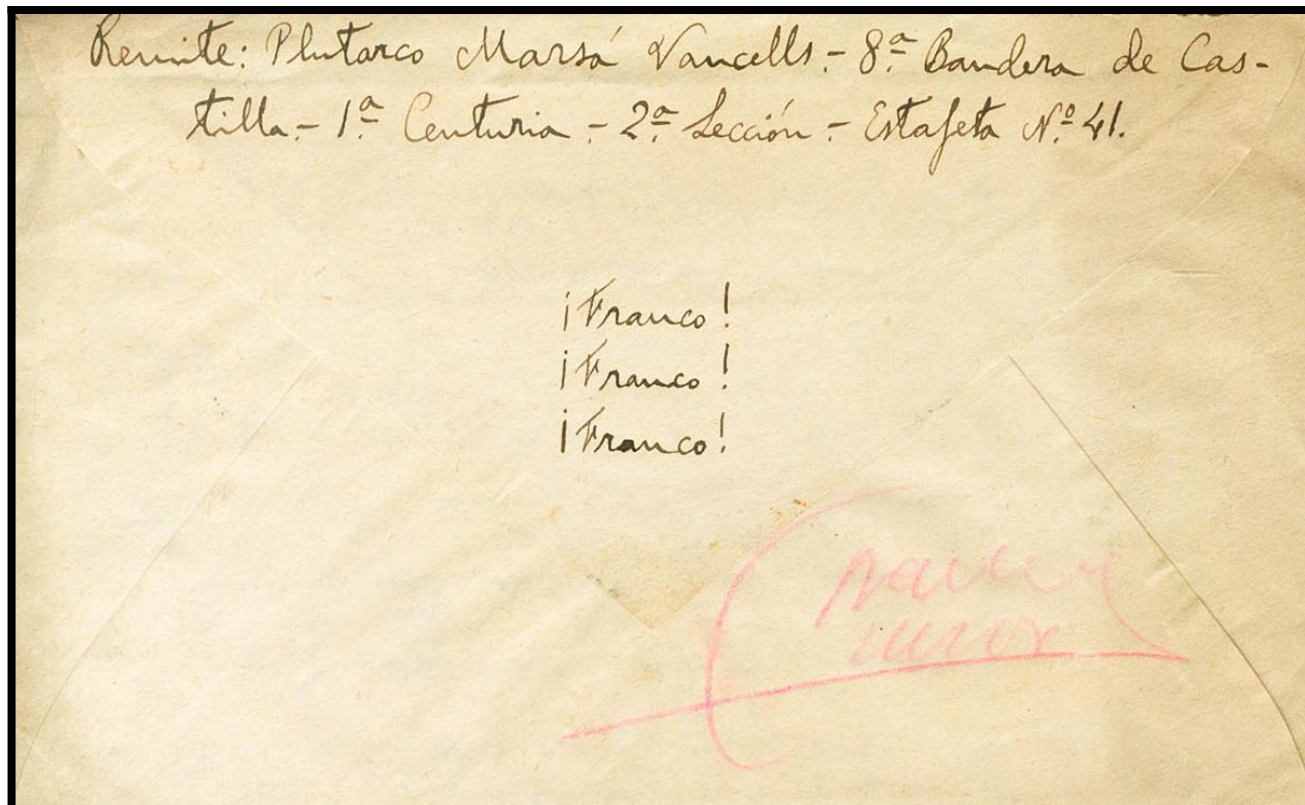 Remite: Plutarco Marsá Vancells.- 8ª Bandera de Cas-
tilla - 1ª Centuria - 2ª Sección - Estafeta Nº 41.
¡Franco!
¡Franco!
¡Franco!